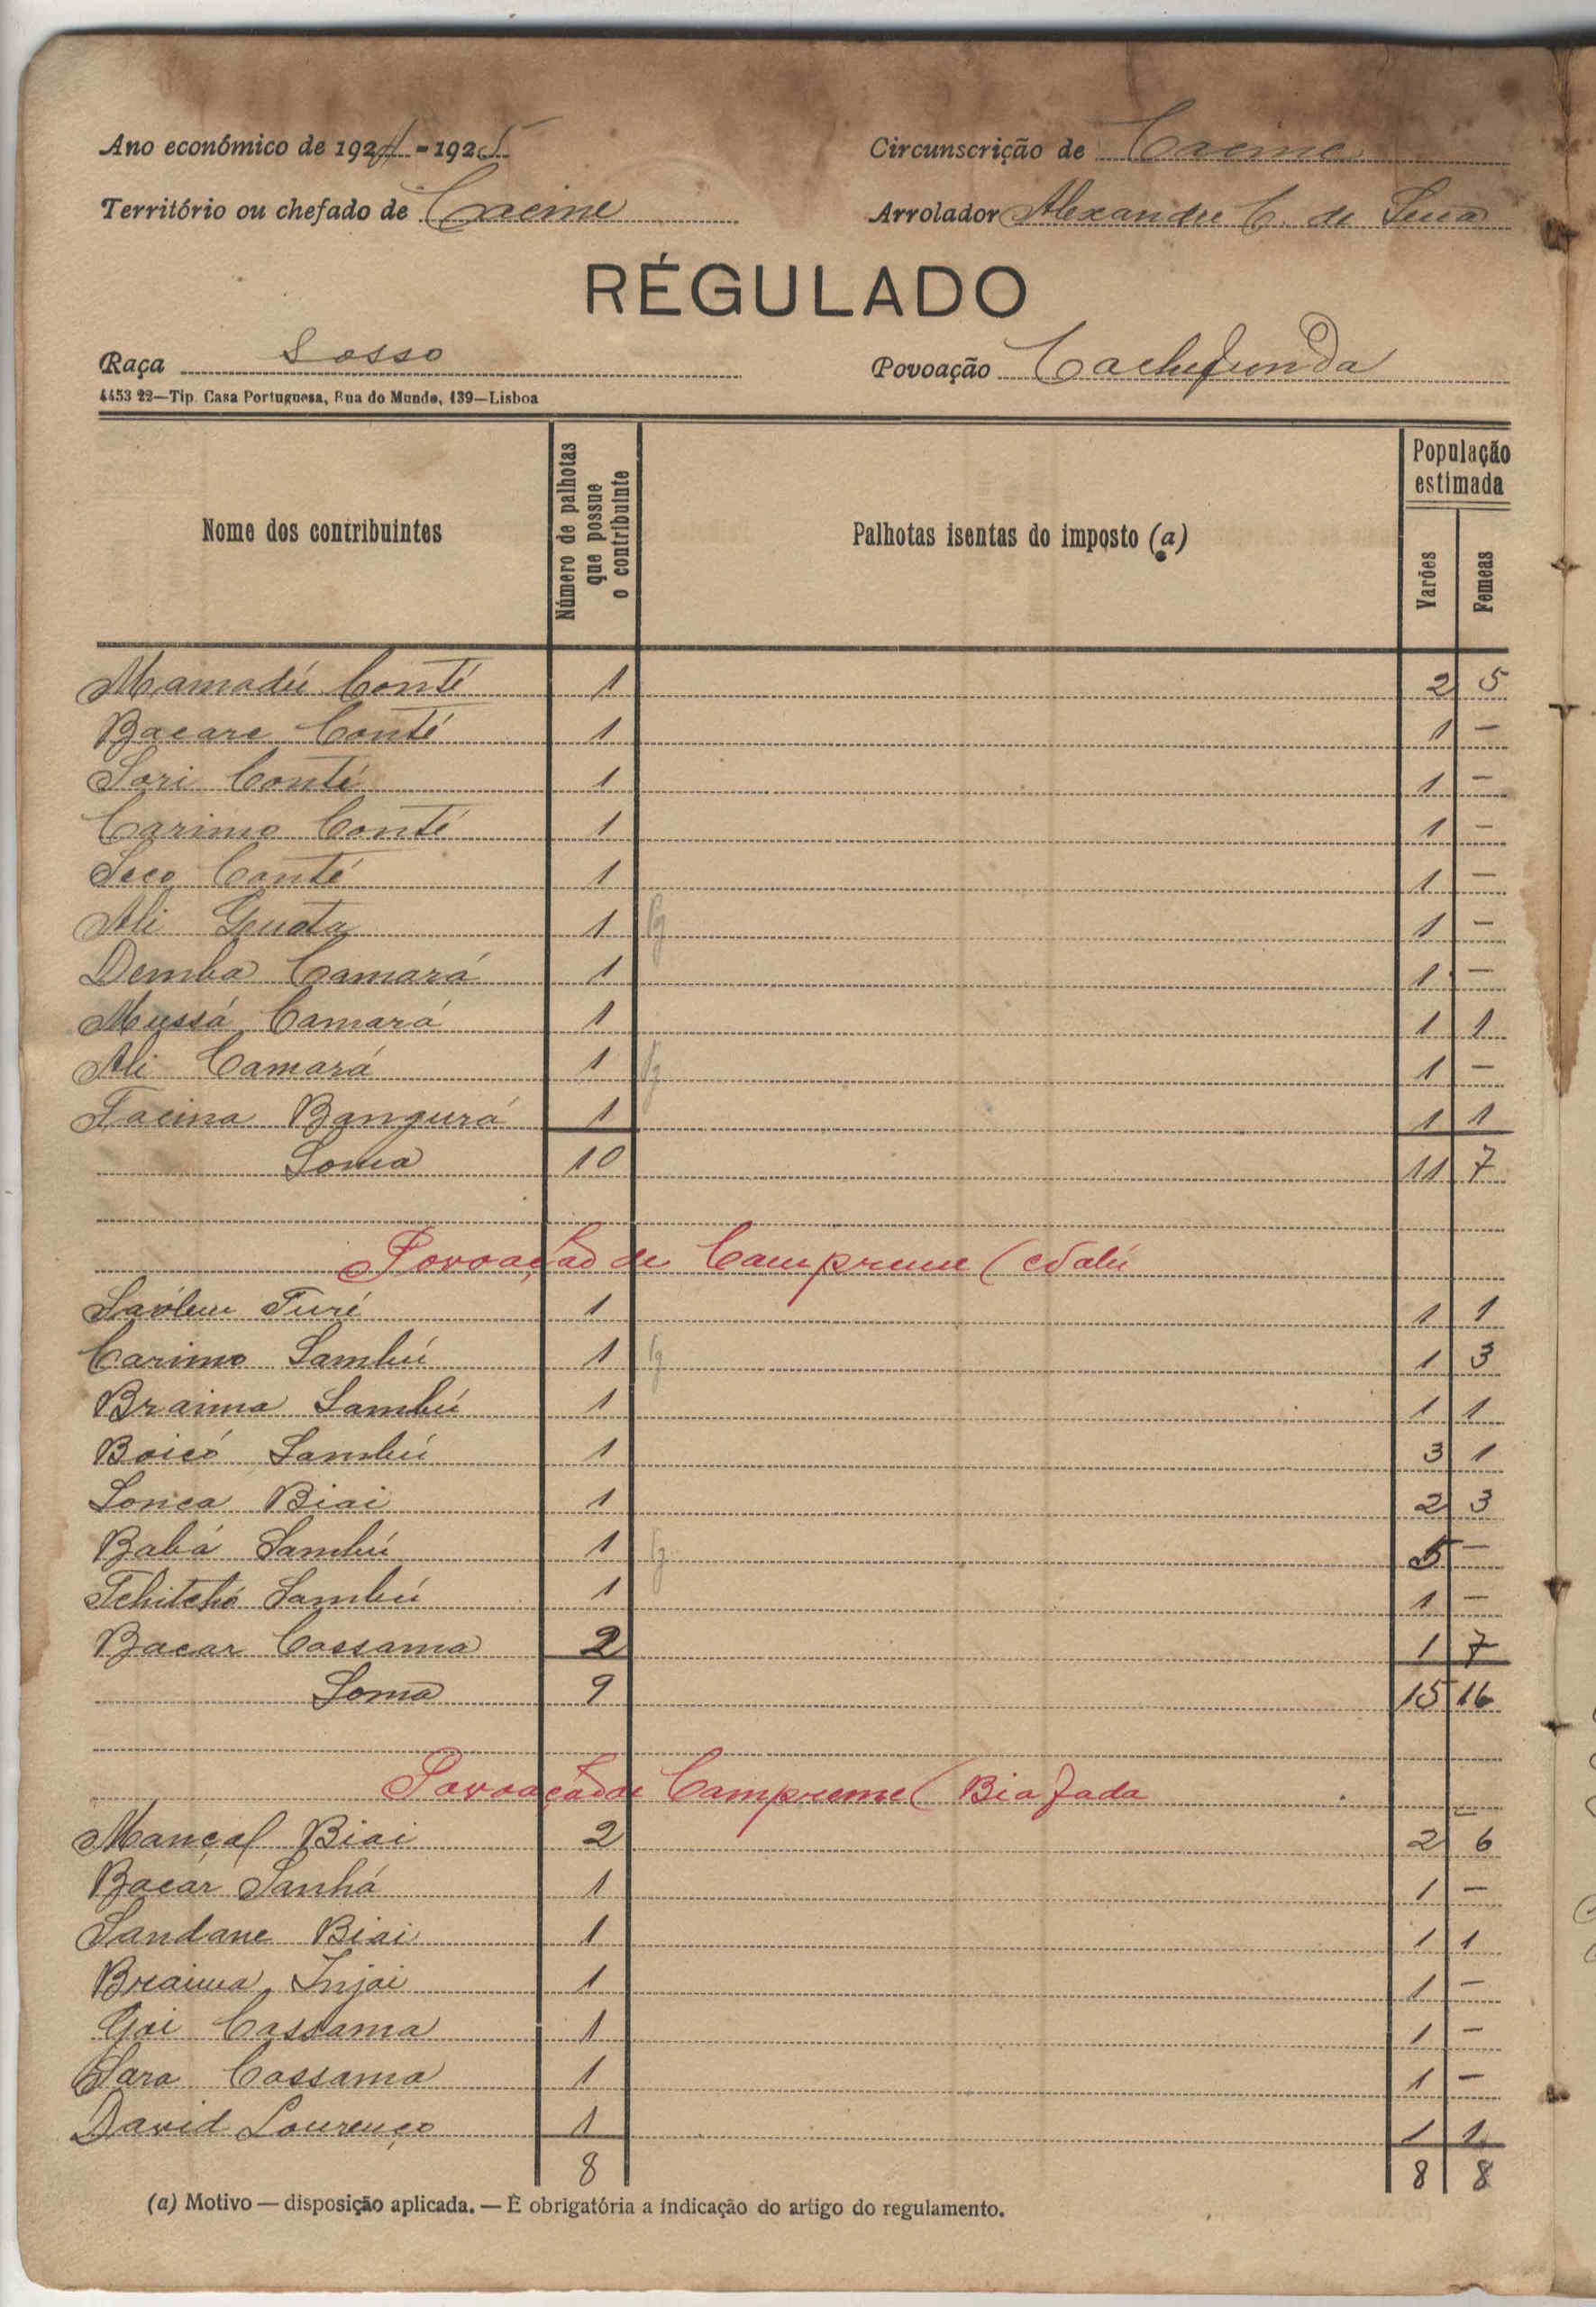 Ano económico de 1924-1925
Circunscrição de Cacine
Território ou chefado de Cacine
Arrolador Alexandre C. de Sena
RÉGULADO
Raça Sosso
Povoação Cachefunda
4453 22—Tip. Casa Portuguesa, Rua do Mundo, 139—Lisboa
Nome dos contribuintes
Número de palhotas que possue o contribuinte
Palhotas isentas do imposto (a)
População estimada
Varões
Femeas
Mamadú Conté 1 2 5
Bacare Conté 1 1 —
Sori Conté 1 1 —
Carimo Conté 1 1 —
Seco Conté 1 1 —
Ali 1 1 —
Demba Camará 1 1 —
Mussá Camará 1 1 1
Ali Camará 1 1 —
Facina Bangurá 1 1 1
Soma 10 11 7
Povoação de Campreme (
Turé 1 1 1
Carimo Sambú 1 1 3
Braima Sambú 1 1 1
Boicó Sambú 1 3 1
Sonca Biai 1 2 3
Babá Sambú 1 5 —
Tchitchó Sambú 1 1 —
Bacar Cassama 2 1 7
Soma 9 15 16
Povoação de Campreme ( Biafada
Mançal Biai 2 2 6
Bacar Sanhá 1 1 —
Sandane Biai 1 1 1
Braima Injai 1 1 —
Cassama 1 1 —
Sara Cassama 1 1 —
David Lourenço 1 1 1
8 8 8
(a) Motivo — disposição aplicada. — È obrigatória a indicação do artigo do regulamento.